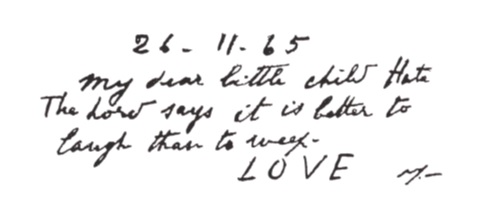 26-11-65
My dear little child Hate
The Lord says it is better to
laugh than to weep.
LOVE